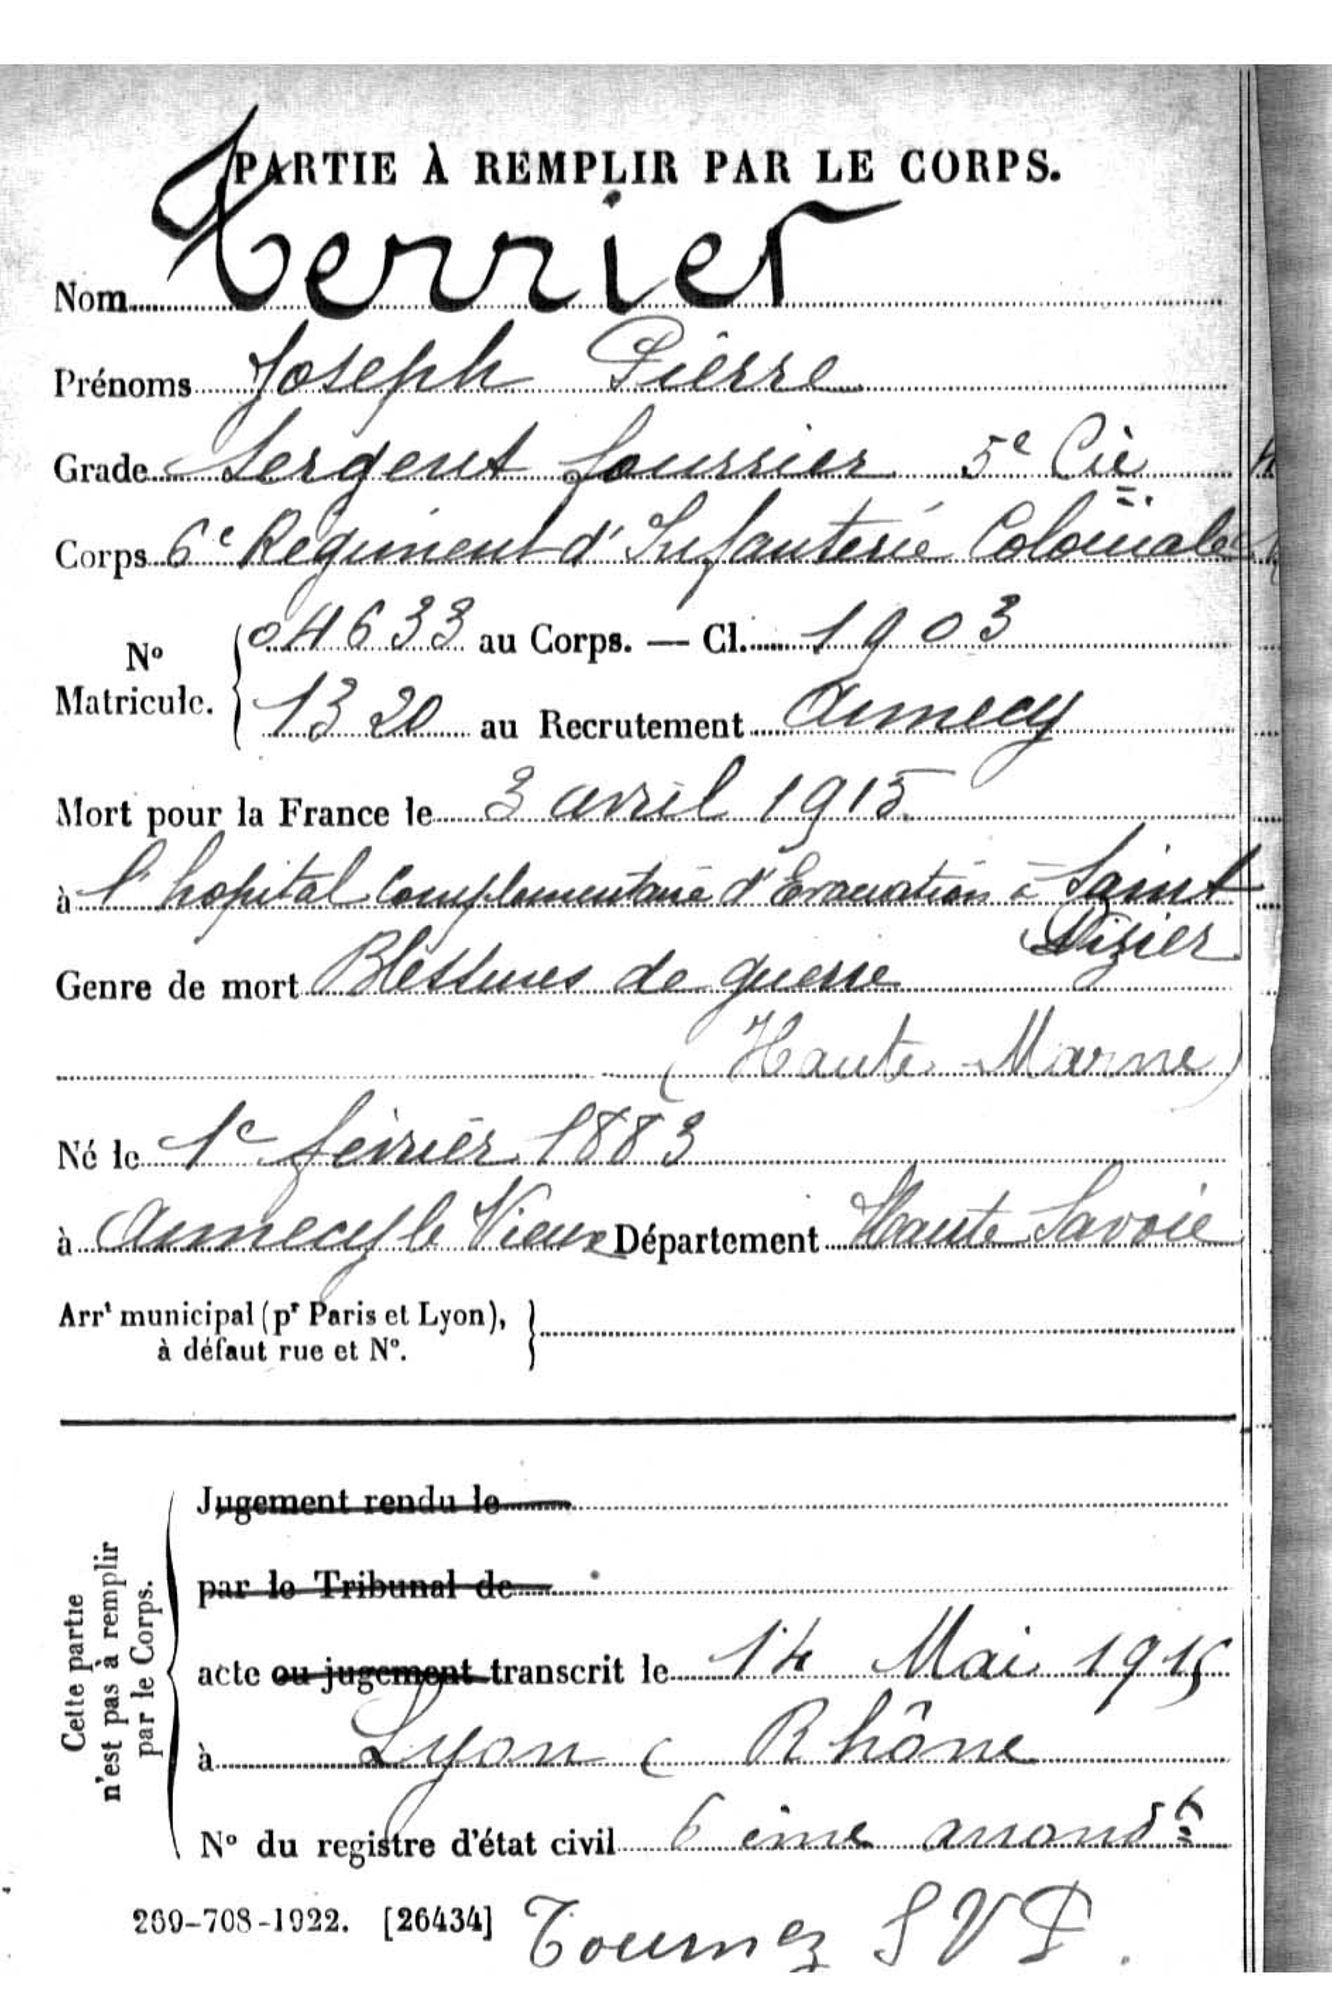 PARTIE À REMPLIR PAR LE CORPS.
Nom Terrier
Prénoms Joseph Pierre
Grade Sergent fourrier 5e Cie
Corps 6e Régiment d'Infanterie Coloniale
No Matricule. 04633 au Corps. — Cl. 1903
1320 au Recrutement Annecy
Mort pour la France le 3 avril 1915
à l'hopital Complémentaire d'Evacuation à Saint
Dizier
Genre de mort Blessures de guerre
(Haute Marne)
Né le 1e février 1883
à Annecy le Vieux Département Haute Savoie
Arrt municipal (pr Paris et Lyon),
à défaut rue et No.
Cette partie
n'est pas à remplir
par le Corps.
Jugement rendu le
par le Tribunal de
acte ou jugement transcrit le 14 Mai 1915
à Lyon ( Rhône
No du registre d'état civil 6 ème arrondt
269-708-1922. [26434] Tournez SVP.